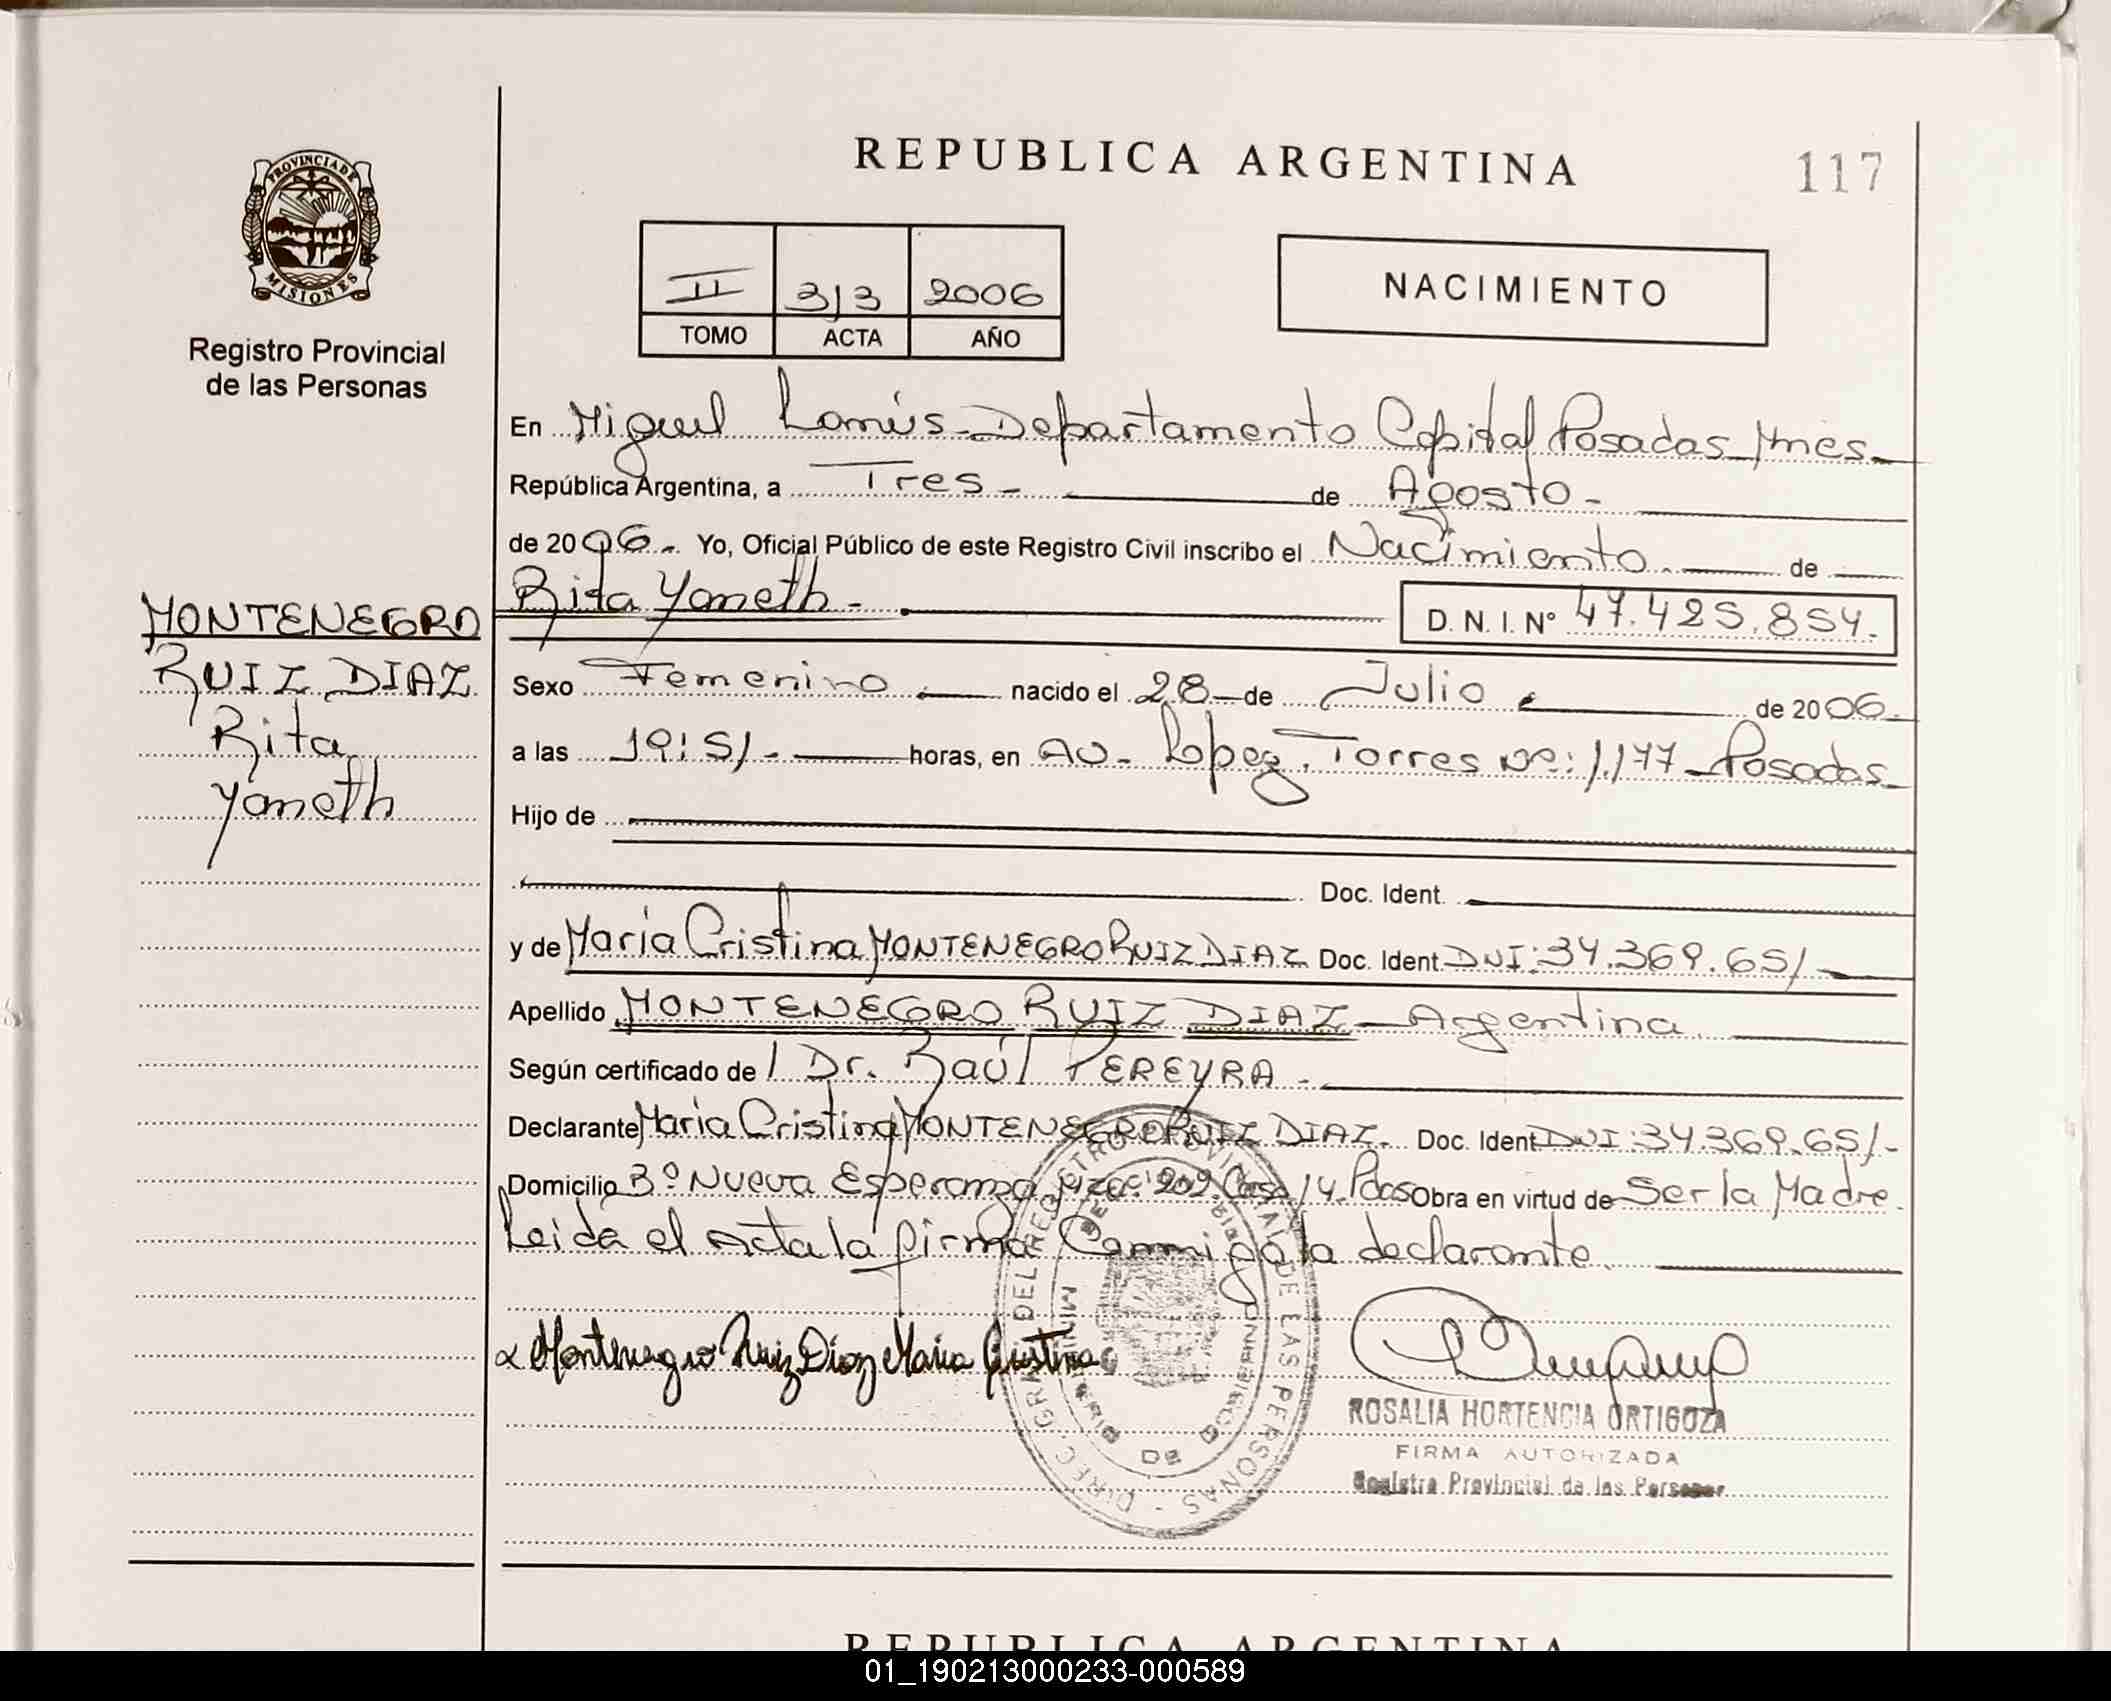 REPUBLICA ARGENTINA
117
PROVINCIA DE
MISIONES
Registro Provincial
de las Personas
II 313 2006
TOMO ACTA AÑO
NACIMIENTO
En Miguel Lanús - Departamento Capital Posadas Mnes -
República Argentina, a Tres - de Agosto -
de 2006 - Yo, Oficial Público de este Registro Civil inscribo el Nacimiento - de
Rita Yaneth -
D. N. I. Nº 47.425.854.
MONTENEGRO
RUIZ DIAZ
Rita
Yaneth
Sexo Femenino nacido el 28 de Julio de 2006
a las 19:51 - horas, en AV - Lopez Torres Nº: 1.177 - Posadas -
Hijo de
Doc. Ident.
y de María Cristina MONTENEGRO RUIZ DIAZ Doc. Ident. DNI: 34.369.651
Apellido MONTENEGRO RUIZ DIAZ - Argentina
Según certificado de / Dr. Raúl PEREYRA -
Declarante María Cristina MONTENEGRO RUIZ DIAZ. Doc. Ident. DNI: 34.369.651 -
Domicilio Bº Nueva Esperanza Mza: 209 Casa 14. Pdas Obra en virtud de Ser la Madre
Leida el Acta la firma Conmigo la declarante
Montenegro Ruiz Diaz Maria Cristina
DIREC GRAL DEL REGISTRO PROVINCIAL DE LAS PERSONAS
MINISTERIO DE GOBIERNO
ROSALIA HORTENCIA ORTIGOZA
FIRMA AUTORIZADA
Registro Provincial de las Personas
REPUBLICA ARGENTINA
01_190213000233-000589